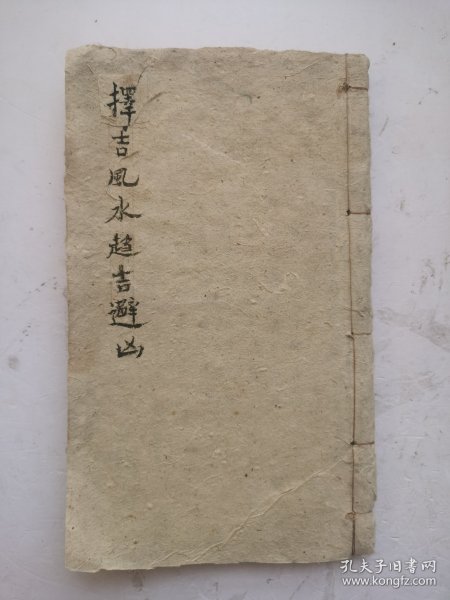 擇吉風水趨吉避凶
孔夫子旧书网
www.kongfz.com